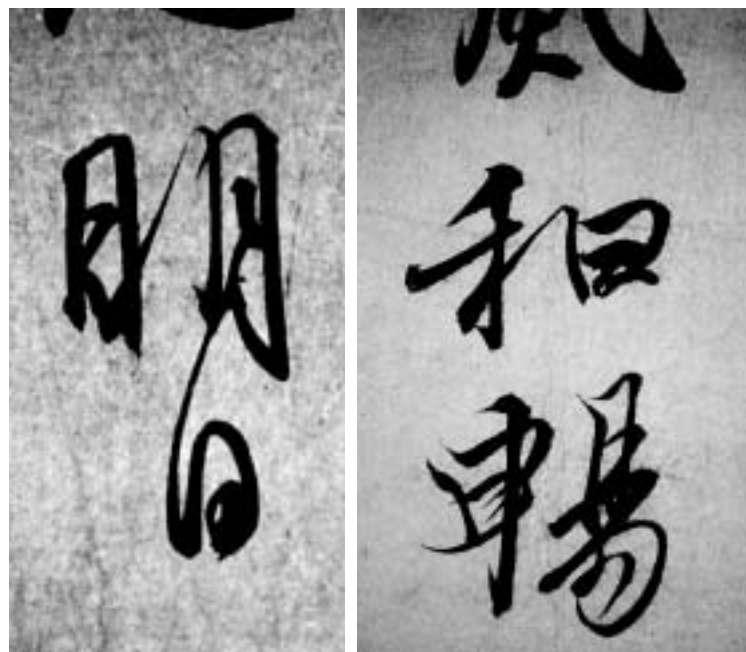 明日
風和暢